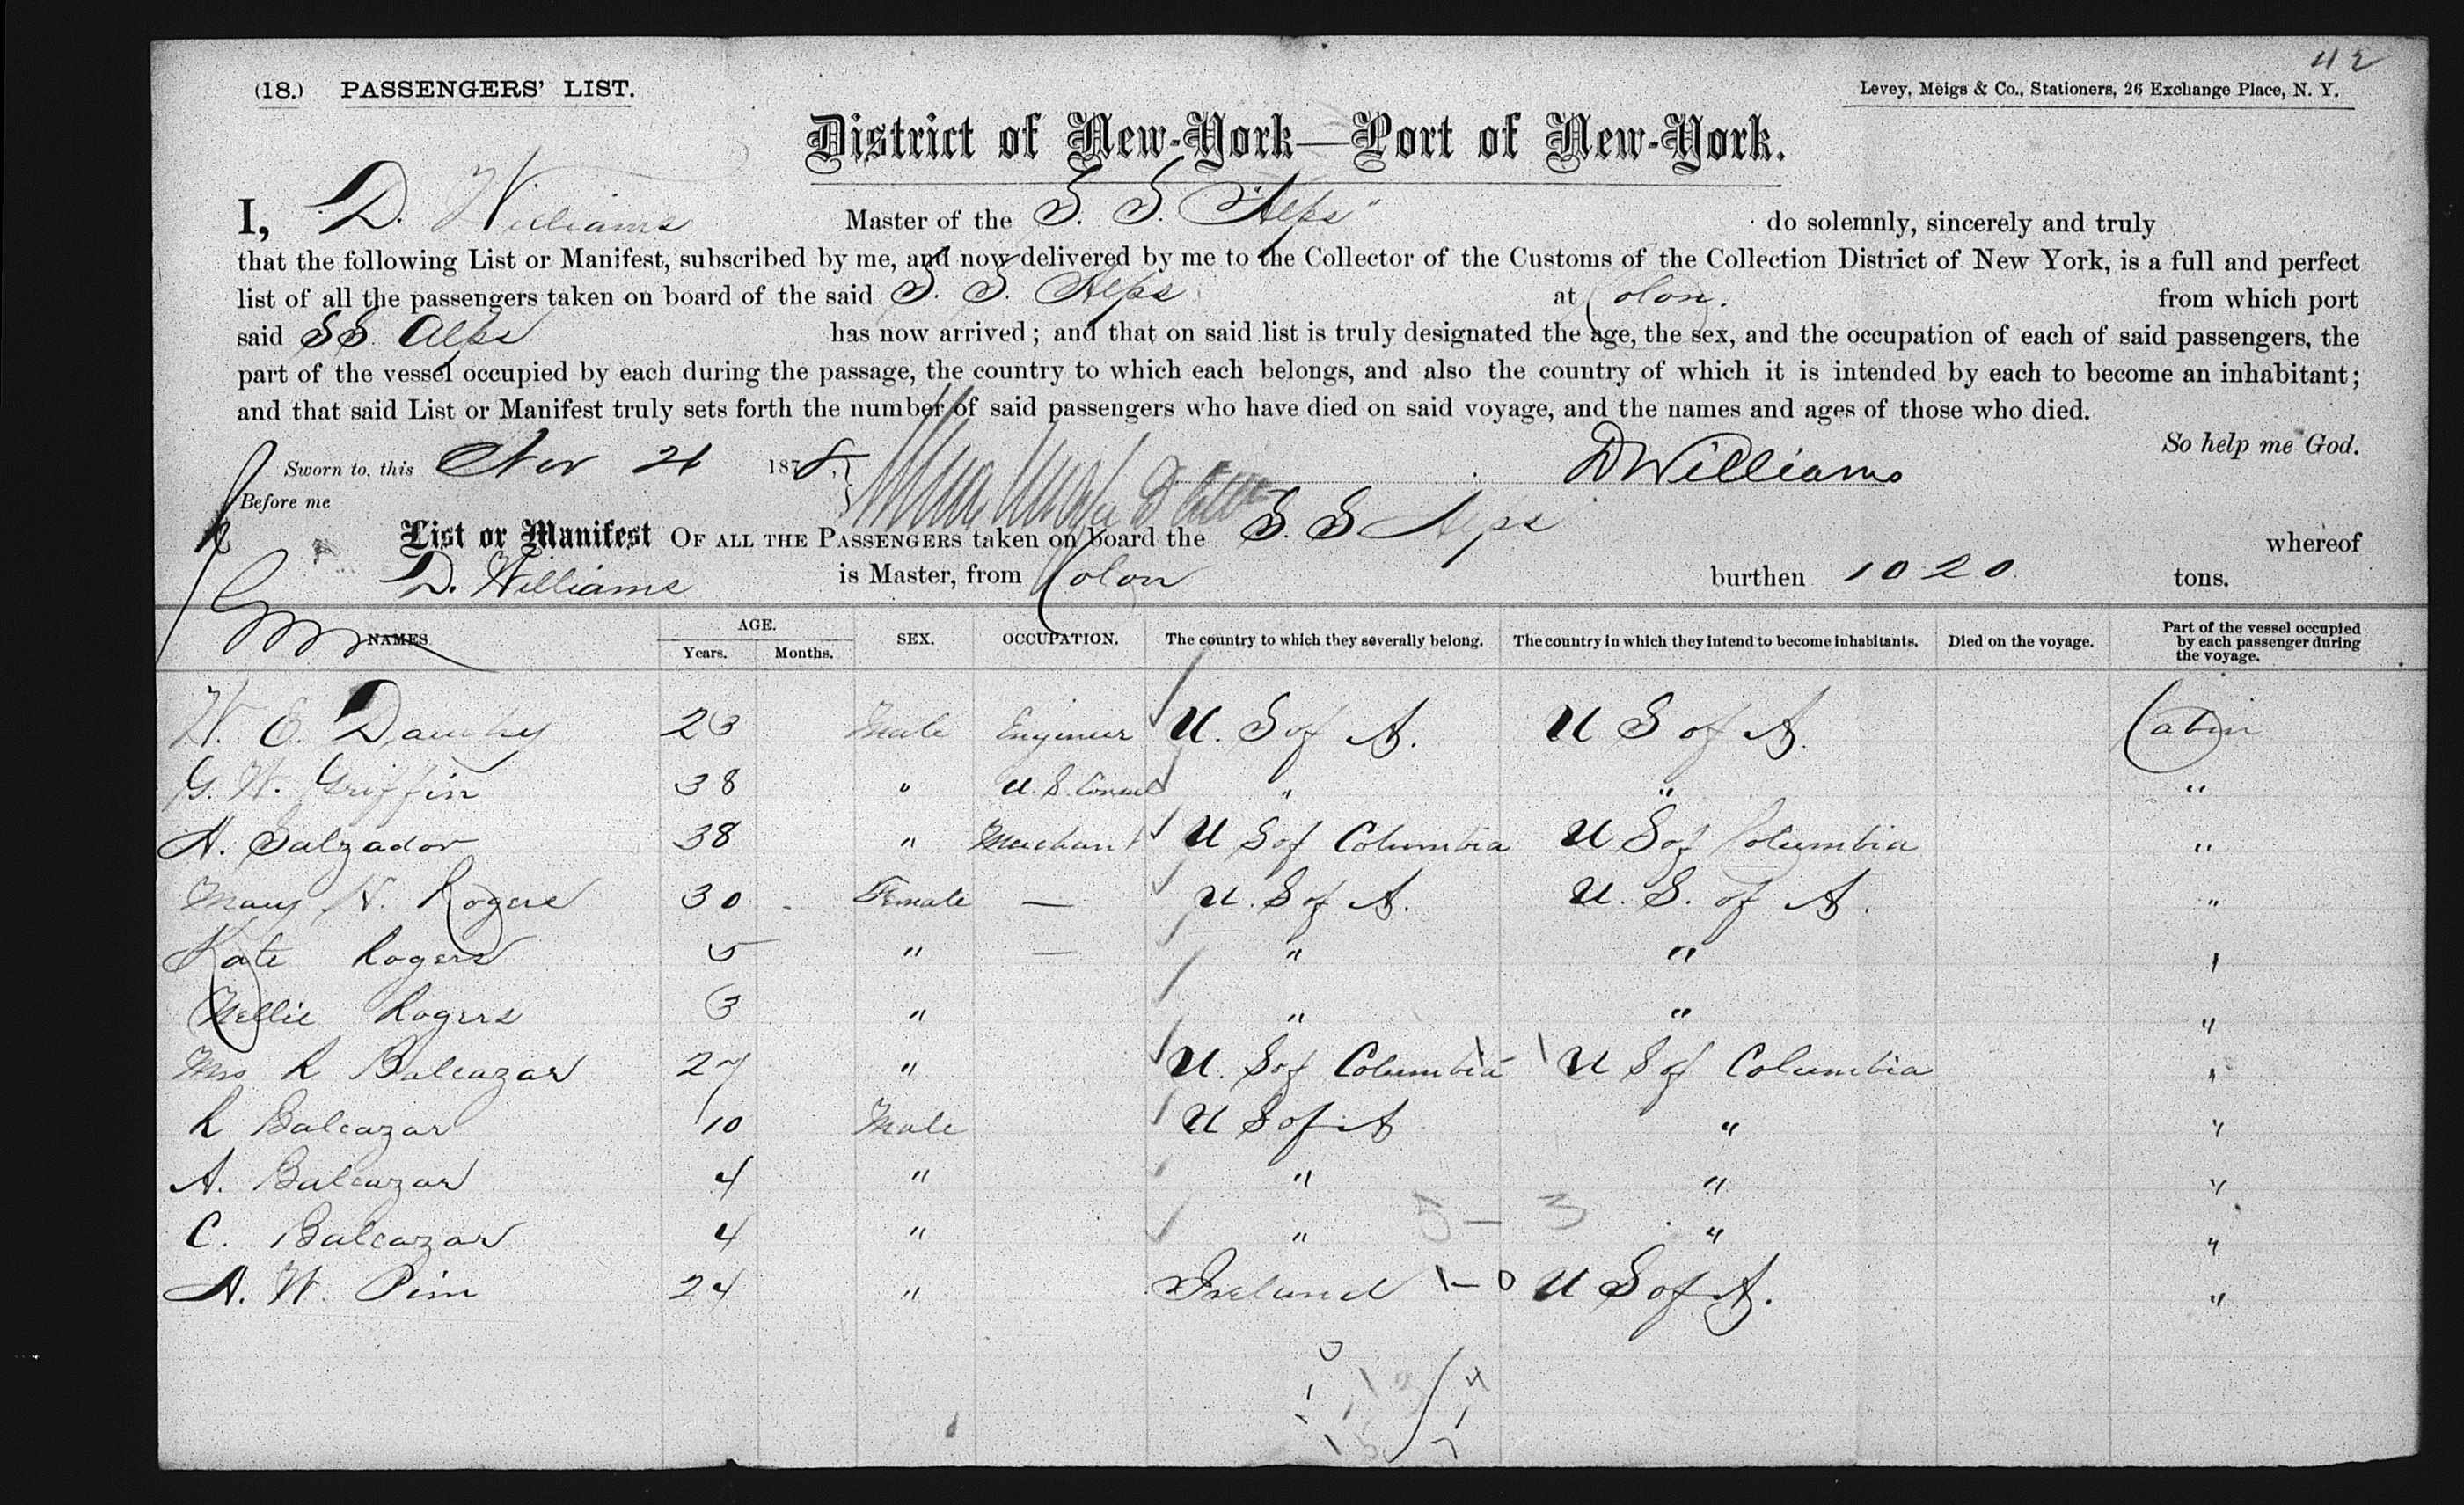 42
(18.) PASSENGERS' LIST.
Levey, Meigs & Co., Stationers, 26 Exchange Place, N. Y.
District of New-York—Port of New-York.
I, D. Williams Master of the S. S. "Alps" do solemnly, sincerely and truly
that the following List or Manifest, subscribed by me, and now delivered by me to the Collector of the Customs of the Collection District of New York, is a full and perfect
list of all the passengers taken on board of the said S. S. Alps at Colon. from which port
said SS. Alps has now arrived; and that on said list is truly designated the age, the sex, and the occupation of each of said passengers, the
part of the vessel occupied by each during the passage, the country to which each belongs, and also the country of which it is intended by each to become an inhabitant;
and that said List or Manifest truly sets forth the number of said passengers who have died on said voyage, and the names and ages of those who died.
So help me God.
Sworn to, this Nov 21 1878. D Williams
Before me
List or Manifest OF ALL THE PASSENGERS taken on board the S. S Alps whereof
D. Williams is Master, from Colon burthen 1020 tons.
NAMES. AGE. Years. Months. SEX. OCCUPATION. The country to which they severally belong. The country in which they intend to become inhabitants. Died on the voyage. Part of the vessel occupied by each passenger during the voyage.
W. E. 23 Male Engineer U. S of A. U S of A. Cabin
G. W. Griffin 38 " U. S. Consul " " "
A. Salzador 38 " Merchant U S of Columbia U S of Columbia "
Mary N. Rogers 30 Female — U. S of A. U. S. of A. "
Kate Rogers 5 " — " " "
Nellie Rogers 3 " " " "
Mrs R Balcazar 27 " U. S of Columbia U S of Columbia "
R Balcazar 10 Male U S of A " "
A. Balcazar 4 " " " "
C. Balcazar 4 " " 5 — 3 " "
A. W. Pim 24 " Ireland 1—0 U S of A. "